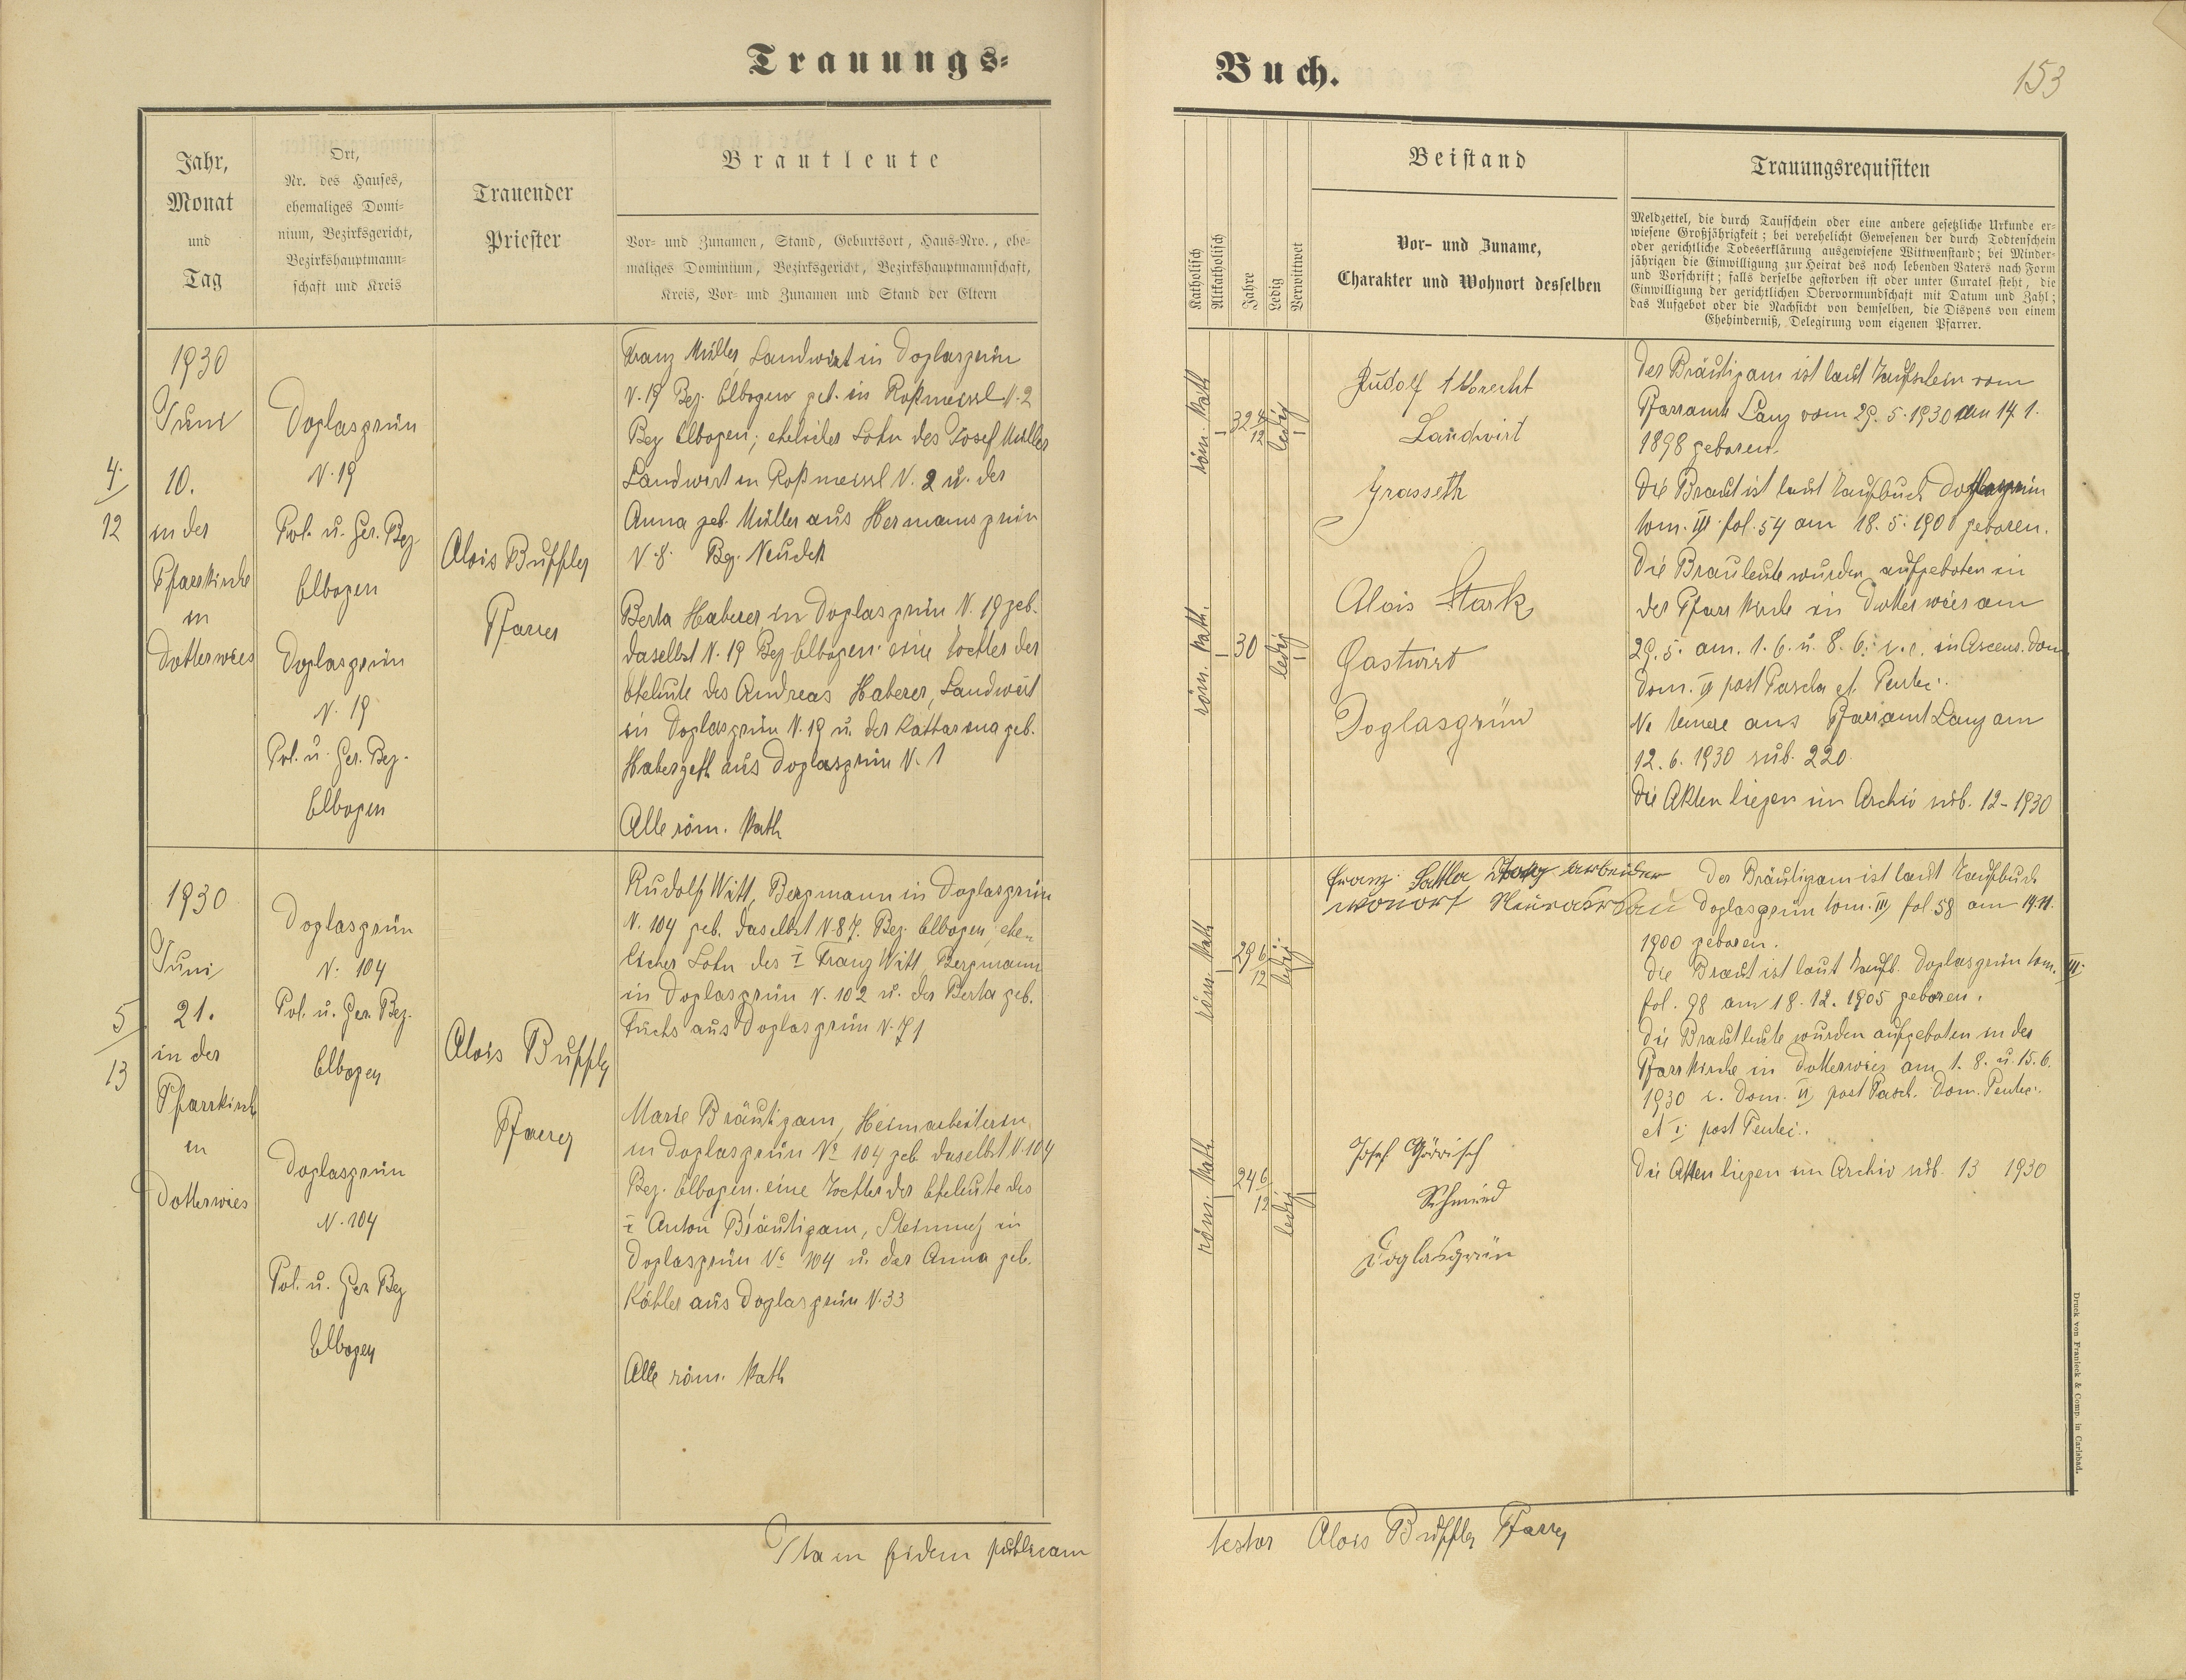 Trauungs=
Buch.
153
Jahr,
Monat
und
Tag
Ort,
Nr. des Hauses,
ehemaliges Domi=
nium, Bezirksgericht,
Bezirkshauptmann=
schaft und Kreis
Trauender
Priester
Brautleute
Vor= und Zunamen, Stand, Geburtsort, Haus=Nro., ehe=
maliges Dominium, Bezirksgericht, Bezirkshauptmannschaft,
Kreis, Vor= und Zunamen und Stand der Eltern
Katholisch
Altkatholisch
Jahre
Ledig
Verwittwet
Beistand
Vor- und Zuname,
Charakter und Wohnort desselben
Trauungsrequisiten
Meldzettel, die durch Taufschein oder eine andere gesetzliche Urkunde er=
wiesene Großjährigkeit; bei verehelicht Gewesenen der durch Todtenschein
oder gerichtliche Todeserklärung ausgewiesene Wittwenstand; bei Minder=
jährigen die Einwilligung zur Heirat des noch lebenden Vaters nach Form
und Vorschrift; falls derselbe gestorben ist oder unter Curatel steht, die
Einwilligung der gerichtlichen Obervormundschaft mit Datum und Zahl;
das Aufgebot oder die Nachsicht von demselben, die Dispens von einem
Ehehinderniß, Delegirung vom eigenen Pfarrer.
4.
12
1930
Juni
10.
in der
Pfarrkirche
in
Dotterwies
Doglasgrün
N. 19
Pol. u. Ger. Bez
Elbogen
Doglasgrün
N. 19
Pol. u. Ger. Bez.
Elbogen
Alois Buffler
Pfarrer
Franz Müller, Landwirt in Doglasgrün
N. 19 Bez. Elbogen geb. in Roßmeissl N. 2
Bez Elbogen; ehelicher Sohn des Josef Müller
Landwirt in Roßmeissl N. 2 u. der
Anna geb. Müller aus Hermannsgrün
N. 8. Bez. Neudek
Berta Haberer, in Doglasgrün N. 19 geb.
daselbst N. 19 Bez Elbogen eine Tochter der
Eheleute des Andreas Haberer, Landwirt
in Doglasgrün N. 19 u. der Katharina geb.
aus Doglasgrün N. 1
Alle röm. kath
röm. kath
32 4/12
ledig
röm. kath.
30
ledig
Rudolf Albrecht
Landwirt
Grasseth
Alois Stark
Gastwirt
Doglasgrün
Der Bräutigam ist laut Taufschein vom
Pfarramt Lanz vom 29. 5. 1930 am 14. 1.
1898 geboren.
Die Braut ist laut Taufbuch Doglasgrün
tom. III. fol. 54 am 18. 5. 1900 geboren.
Die Brauleute wurden aufgeboten in
der Pfarrkirche in Dotterwies am
29. 5. am. 1. 6. u. 8. 6. i. e. in Ascens. Dom
Dom. VI post Pascha et Pentec.
aus Pfarramt Lanz am
12. 6. 1930 sub. 220.
Die Akten liegen im Archiv sub. 12-1930
5
13
1930
Juni
21.
in der
Pfarrkirch
in
Dotterwies
Doglasgrün
N. 104
Pol. u. Ger. Bez.
Elbogen
Doglasgrün
N. 104
Pol. u. Ger Bez
Elbogen
Alois Buffler
Pfarrer
Rudolf Witt, Bergmann in Doglasgrün
N. 104 geb. daselbst N. 87. Bez. Elbogen, ehe-
licher Sohn des † Franz Witt, Bergmann
in Doglasgrün N. 102 u. der Berta geb.
Fuchs aus Doglasgrün N. 71
Marie Bräutigam, Heimarbeiterin,
in Doglasgrün No 104 geb. daselbst N. 104
Bez. Elbogen, eine Tochter der Eheleute des
† Anton Bräutigam, Steinmetz in
Doglasgrün No 104 u. der Anna geb.
Köhler aus Doglasgrün N. 33
Alle röm. kath
röm. kath
29 6/12
ledig
röm. kath.
24 6/12
ledig
Franz Sattler arbeiter
wonort
Josef Görrisch
Schmied
Doglasgrün
Der Bräutigam ist laut Taufbuch
Doglasgrün tom. III fol 58 am 19. 11.
1900 geboren.
Die Braut ist laut Taufb. Doglasgrün tom. III.
fol. 98 am 18. 12. 1905 geboren.
Die Brautleute wurden aufgeboten in der
Pfarrkirche in Dotterwies am 1. 8. u. 15. 6.
1930 i. Dom. VI post Pasch. Dom. Pentec.
et I. post Pentec.
Die Akten liegen im Archiv sub. 13 1930
Ita in fidem publicam
testor Alois Buffler Pfarrer
Druck von Franieck & Comp. in Carlsbad.